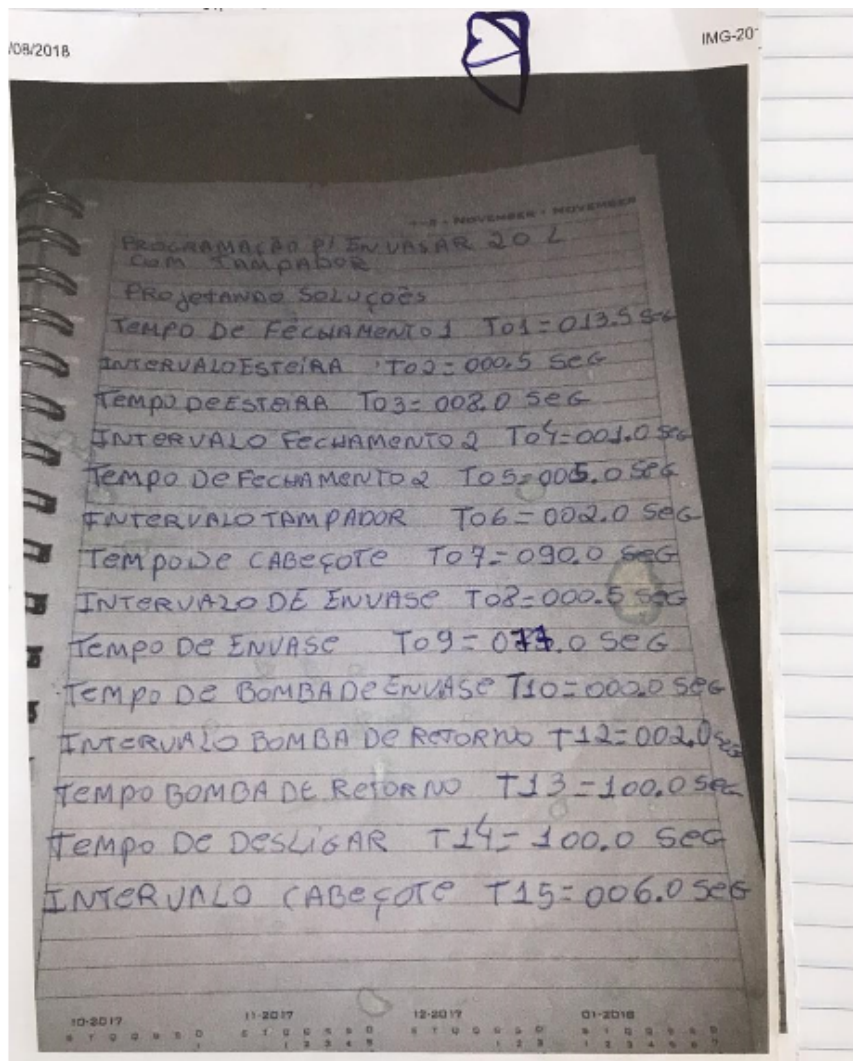 /08/2018
IMG-20
NOVEMBER • NOVEMBER
PROGRAMAÇÃO P/ ENVASAR 20 L
COM TAMPADOR
PROJETANDO SOLUÇOES
TEMPO DE FECHAMENTO 1 T01=013.5 SEG
INTERVALO ESTEIRA T02=000.5 SEG
TEMPO DE ESTEIRA T03=008.0 SEG
INTERVALO FECHAMENTO 2 T04=001.0 SEG
TEMPO DE FECHAMENTO 2 T05=005.0 SEG
INTERVALO TAMPADOR T06=002.0 SEG
TEMPO DE CABEÇOTE T07=090.0 SEG
INTERVALO DE ENVASE T08=000.5 SEG
TEMPO DE ENVASE T09=077.0 SEG
TEMPO DE BOMBA DE ENVASE T10=000.0 SEG
INTERVALO BOMBA DE RETORNO T12=002.0 SEG
TEMPO BOMBA DE RETORNO T13=100.0 SEG
TEMPO DE DESLIGAR T14=100.0 SEG
INTERVALO CABEÇOTE T15=006.0 SEG
10-2017 11-2017 12-2017 01-2018